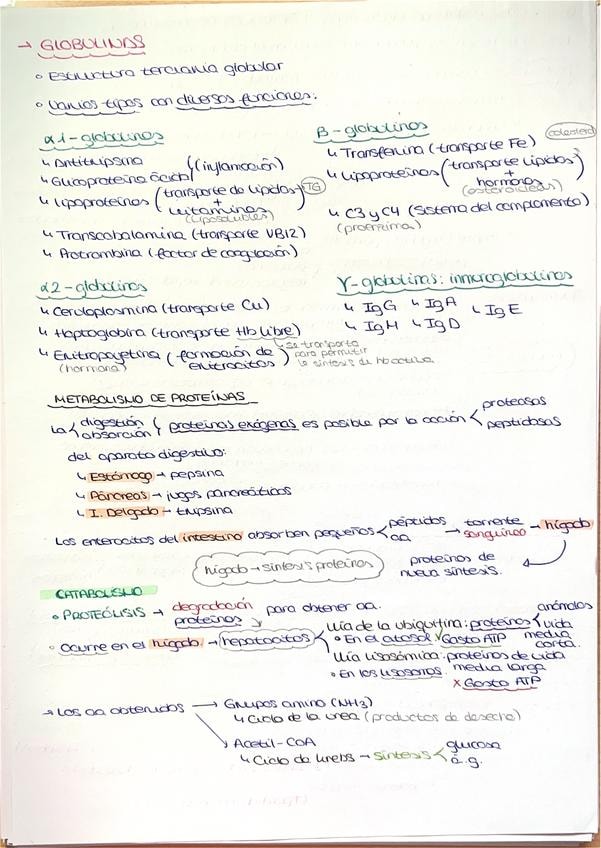 → GLOBULINAS
◦ Estructura terciaria globular
◦ Varios tipos con diversas funciones:
α1-globulinas
↳ Antitripsina
↳ Glicoproteína ácida
(inflamación)
↳ Lipoproteínas (transporte de lípidos + vitaminas) TG
(liposolubles)
↳ Transcobalamina (transporte VB12)
↳ Protrombina (factor de coagulación)
β-globulinas
↳ Transferrina (transporte Fe)
colesterol
↳ Lipoproteínas (transporte lípidos + hormonas)
(esteroideas)
↳ C3 y C4 (Sistema del complemento)
(proenzima)
α2-globulinas
↳ Ceruloplasmina (transporte Cu)
↳ Haptoglobina (transporte Hb libre)
↳ se transporta para permitir la síntesis de hb activa
↳ Eritropoyetina (formación de eritrocitos)
(hormona)
γ-globulinas: inmunoglobulinas
↳ IgG ↳ IgA ↳ IgE
↳ IgM ↳ IgD
METABOLISMO DE PROTEÍNAS
La < digestión absorción { proteínas exógenas es posible por la acción < proteasas peptidasas
del aparato digestivo:
↳ Estómago → pepsina
↳ Páncreas → jugos pancreáticos
↳ I. Delgado → tripsina
Los enterocitos del intestino absorben pequeños < péptidos aa → torrente sanguíneo → hígado
hígado → síntesis proteínas
proteínas de nueva síntesis.
CATABOLISMO
◦ PROTEÓLISIS → degradación proteínas para obtener aa.
◦ Ocurre en el hígado → hepatocitos
Vía de la ubiquitina: proteínas < anómalas vida media corta.
◦ En el citosol ✓ Gasto ATP
Vía lisosómica: proteínas de vida media larga
◦ En los lisosomas.
x Gasto ATP
→ Los aa obtenidos → Grupos amino (NH3)
↳ Ciclo de la urea (productos de desecho)
↘ Acetil-CoA
↳ Ciclo de Krebs → síntesis < glucosa a.g.